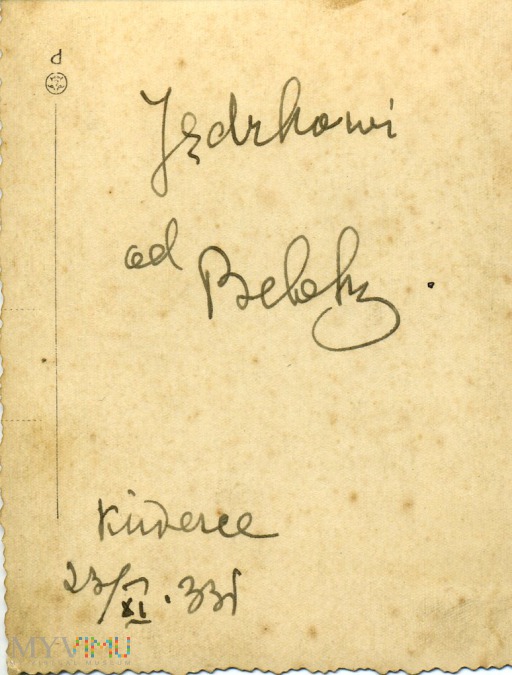 Jędrkowi
od Bebeky.
Kiwerce
23/XI.33r
MYVIMU